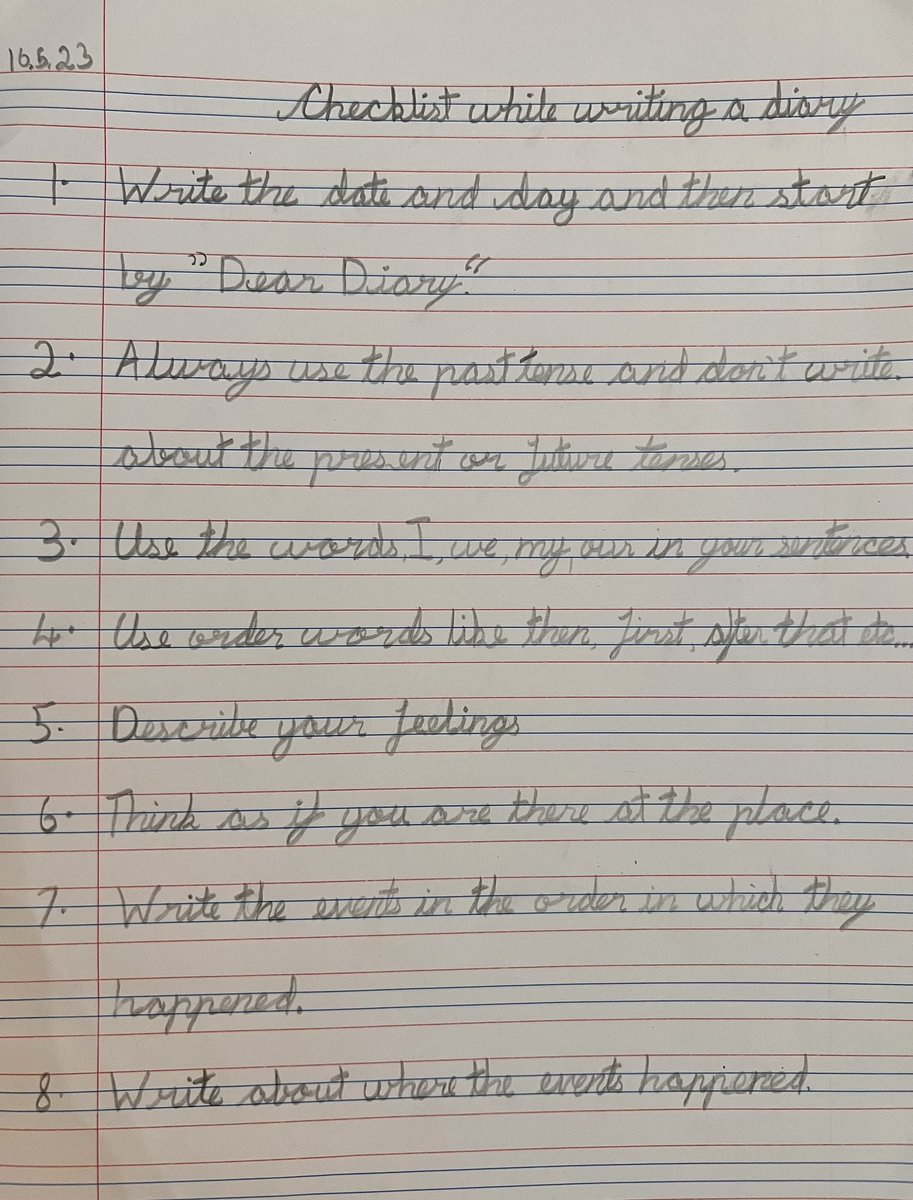 16.5.23
Checklist while writing a diary
1. Write the date and day and then start
by ”Dear Diary.“
2. Always use the past tense and don't write.
about the present or future tenses.
3. Use the words, I, we, my, our in your sentences.
4. Use order words like then, first, after that etc...
5. Describe your feelings
6. Think as if you are there at the place.
7. Write the events in the order in which they
happened.
8. Write about where the events happened.